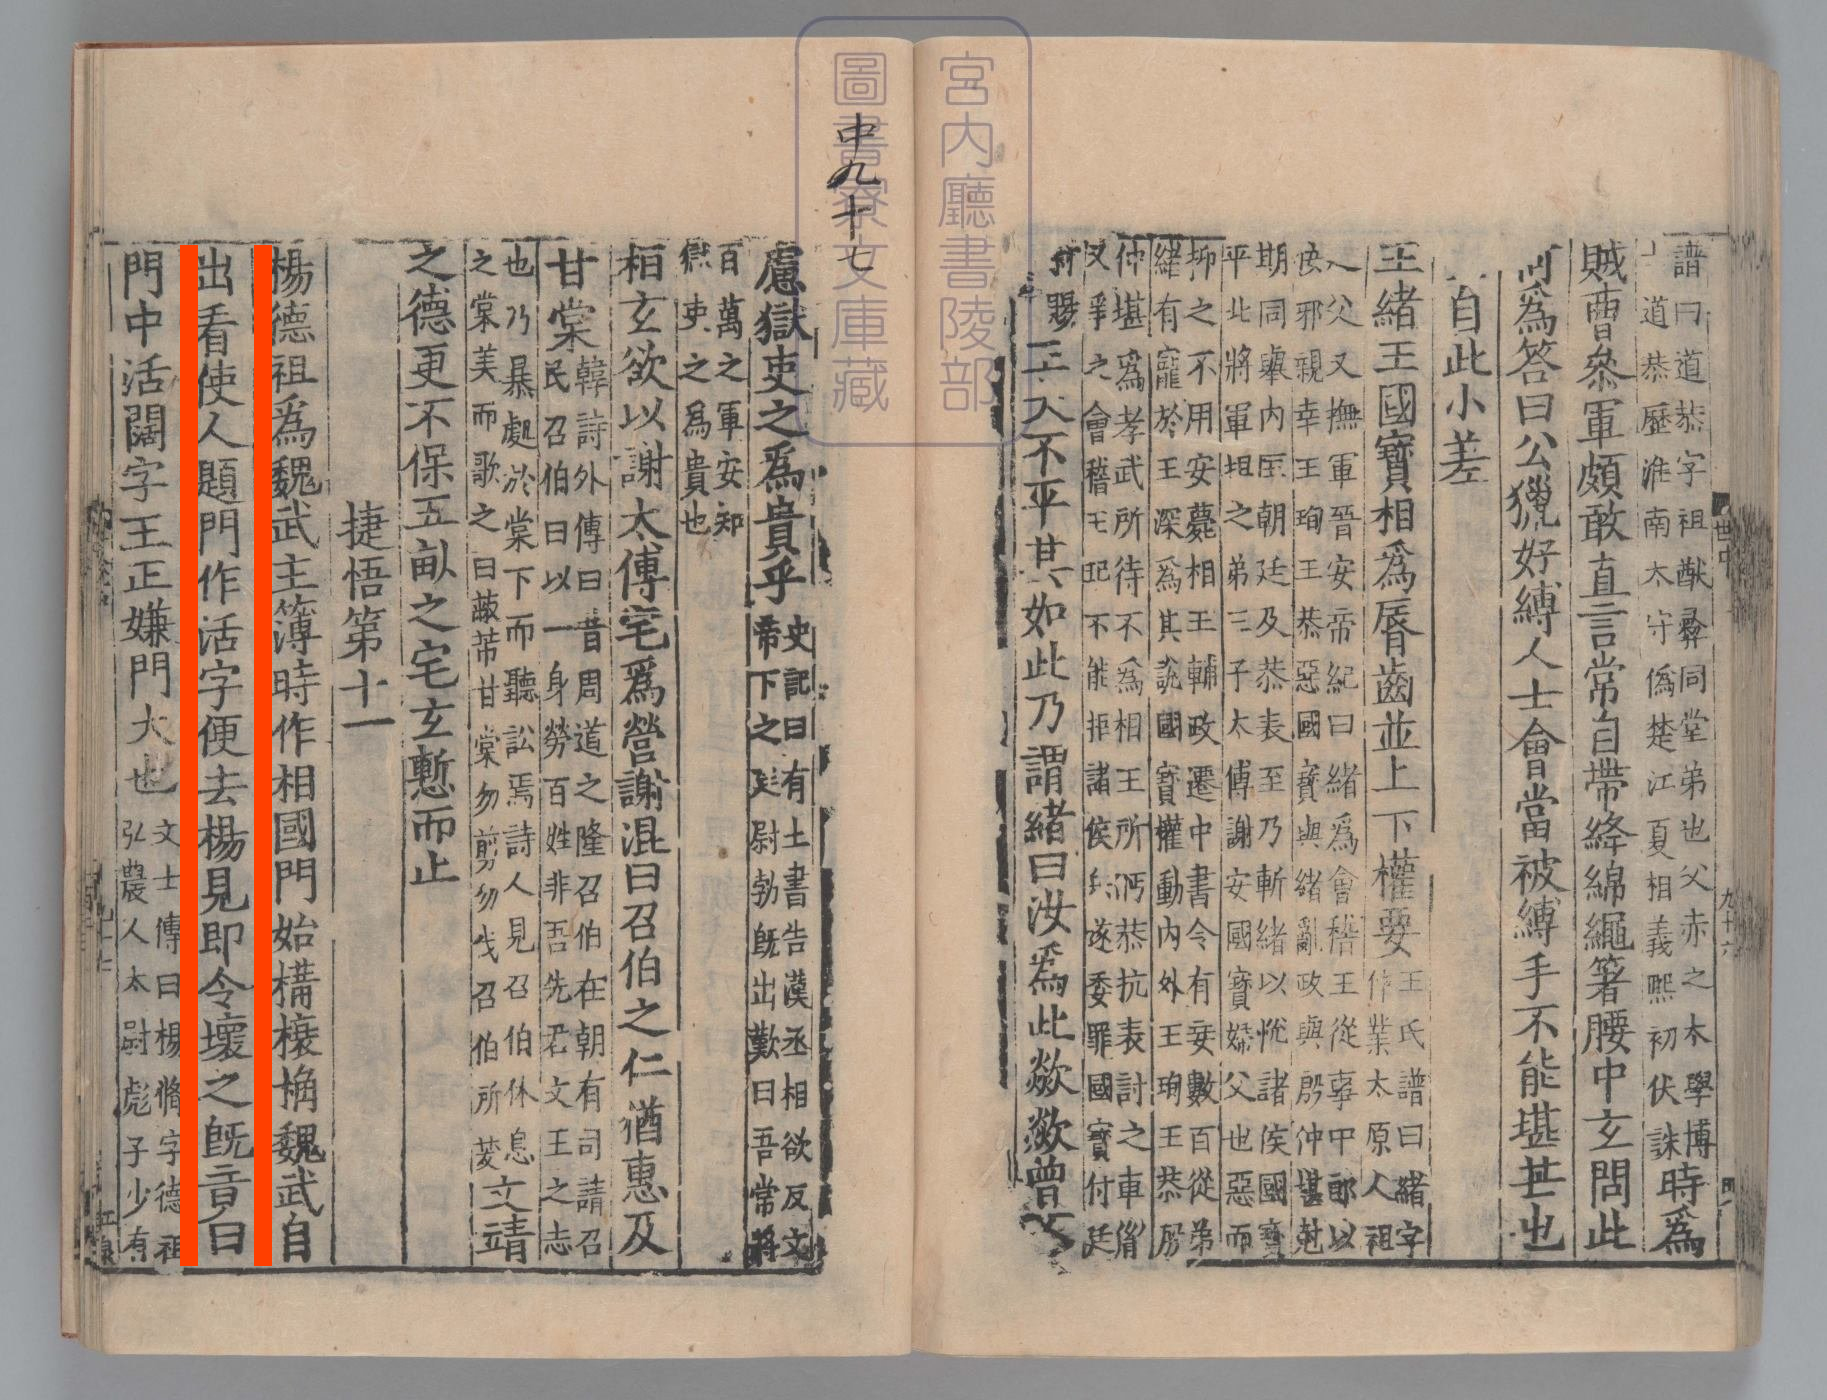 譜曰道恭字祖猷彛同堂弟也父赤之木學博
道恭歷淮南太守僞楚江夏相義熙初伏誅時爲
賊曹參軍頗敢直言常自帶絳綿繩箸腰中玄問此
何爲答曰公獵好縛人士會當被縛手不能堪芒也
自此小差
王緒王國寶相爲脣齒並上下權要
王氏譜曰緒字
作業太原人祖
父又撫軍晉安帝紀曰緒爲會稽王從事中郎以
佞邪親幸王珣王恭惡國寶與緒亂政與殷仲堪尅
期同舉內匡朝廷及恭表至乃斬緒以恱諸侯國寶
平北將軍坦之弟三子太傅謝安國寶婦父也惡而
抑之不用安薨相王輔政遷中書令有妾數百從弟
緒有寵於王深爲其說國寶權動內外王珣王恭殷
仲堪爲孝武所待不爲相王所眄恭抗表討之車胤
又爭之會稽王旣不能拒諸侯兵遂委罪國寶付廷
尉賜
王大不平其如此乃謂緒曰汝爲此欻欻曾
慮獄吏之爲貴乎
史記曰有上書告漢丞相欲反文
帝下之廷尉勃旣出歎曰吾常將
百萬之軍安知
獄吏之爲貴也
桓玄欲以謝太傅宅爲營謝混曰召伯之仁猶惠及
甘棠
韓詩外傳曰昔周道之隆召伯在朝有司請召
民召伯曰以一身勞百姓非吾先君文王之志
也乃暴處於棠下而聽訟焉詩人見召伯休息
之棠美而歌之曰蔽芾甘棠勿剪勿伐召伯所茇
文靖
之德更不保五畝之宅玄慙而止
捷悟第十一
楊德祖爲魏武主簿時作相國門始構榱桷魏武自
出看使人題門作活字便去楊見即令壞之旣竟曰
門中活闊字王正嫌門大也
文士傳曰楊脩字德祖
弘農人太尉彪子少有
中九十七
宮內廳書陵部
圖書寮文庫藏
世中
九十六